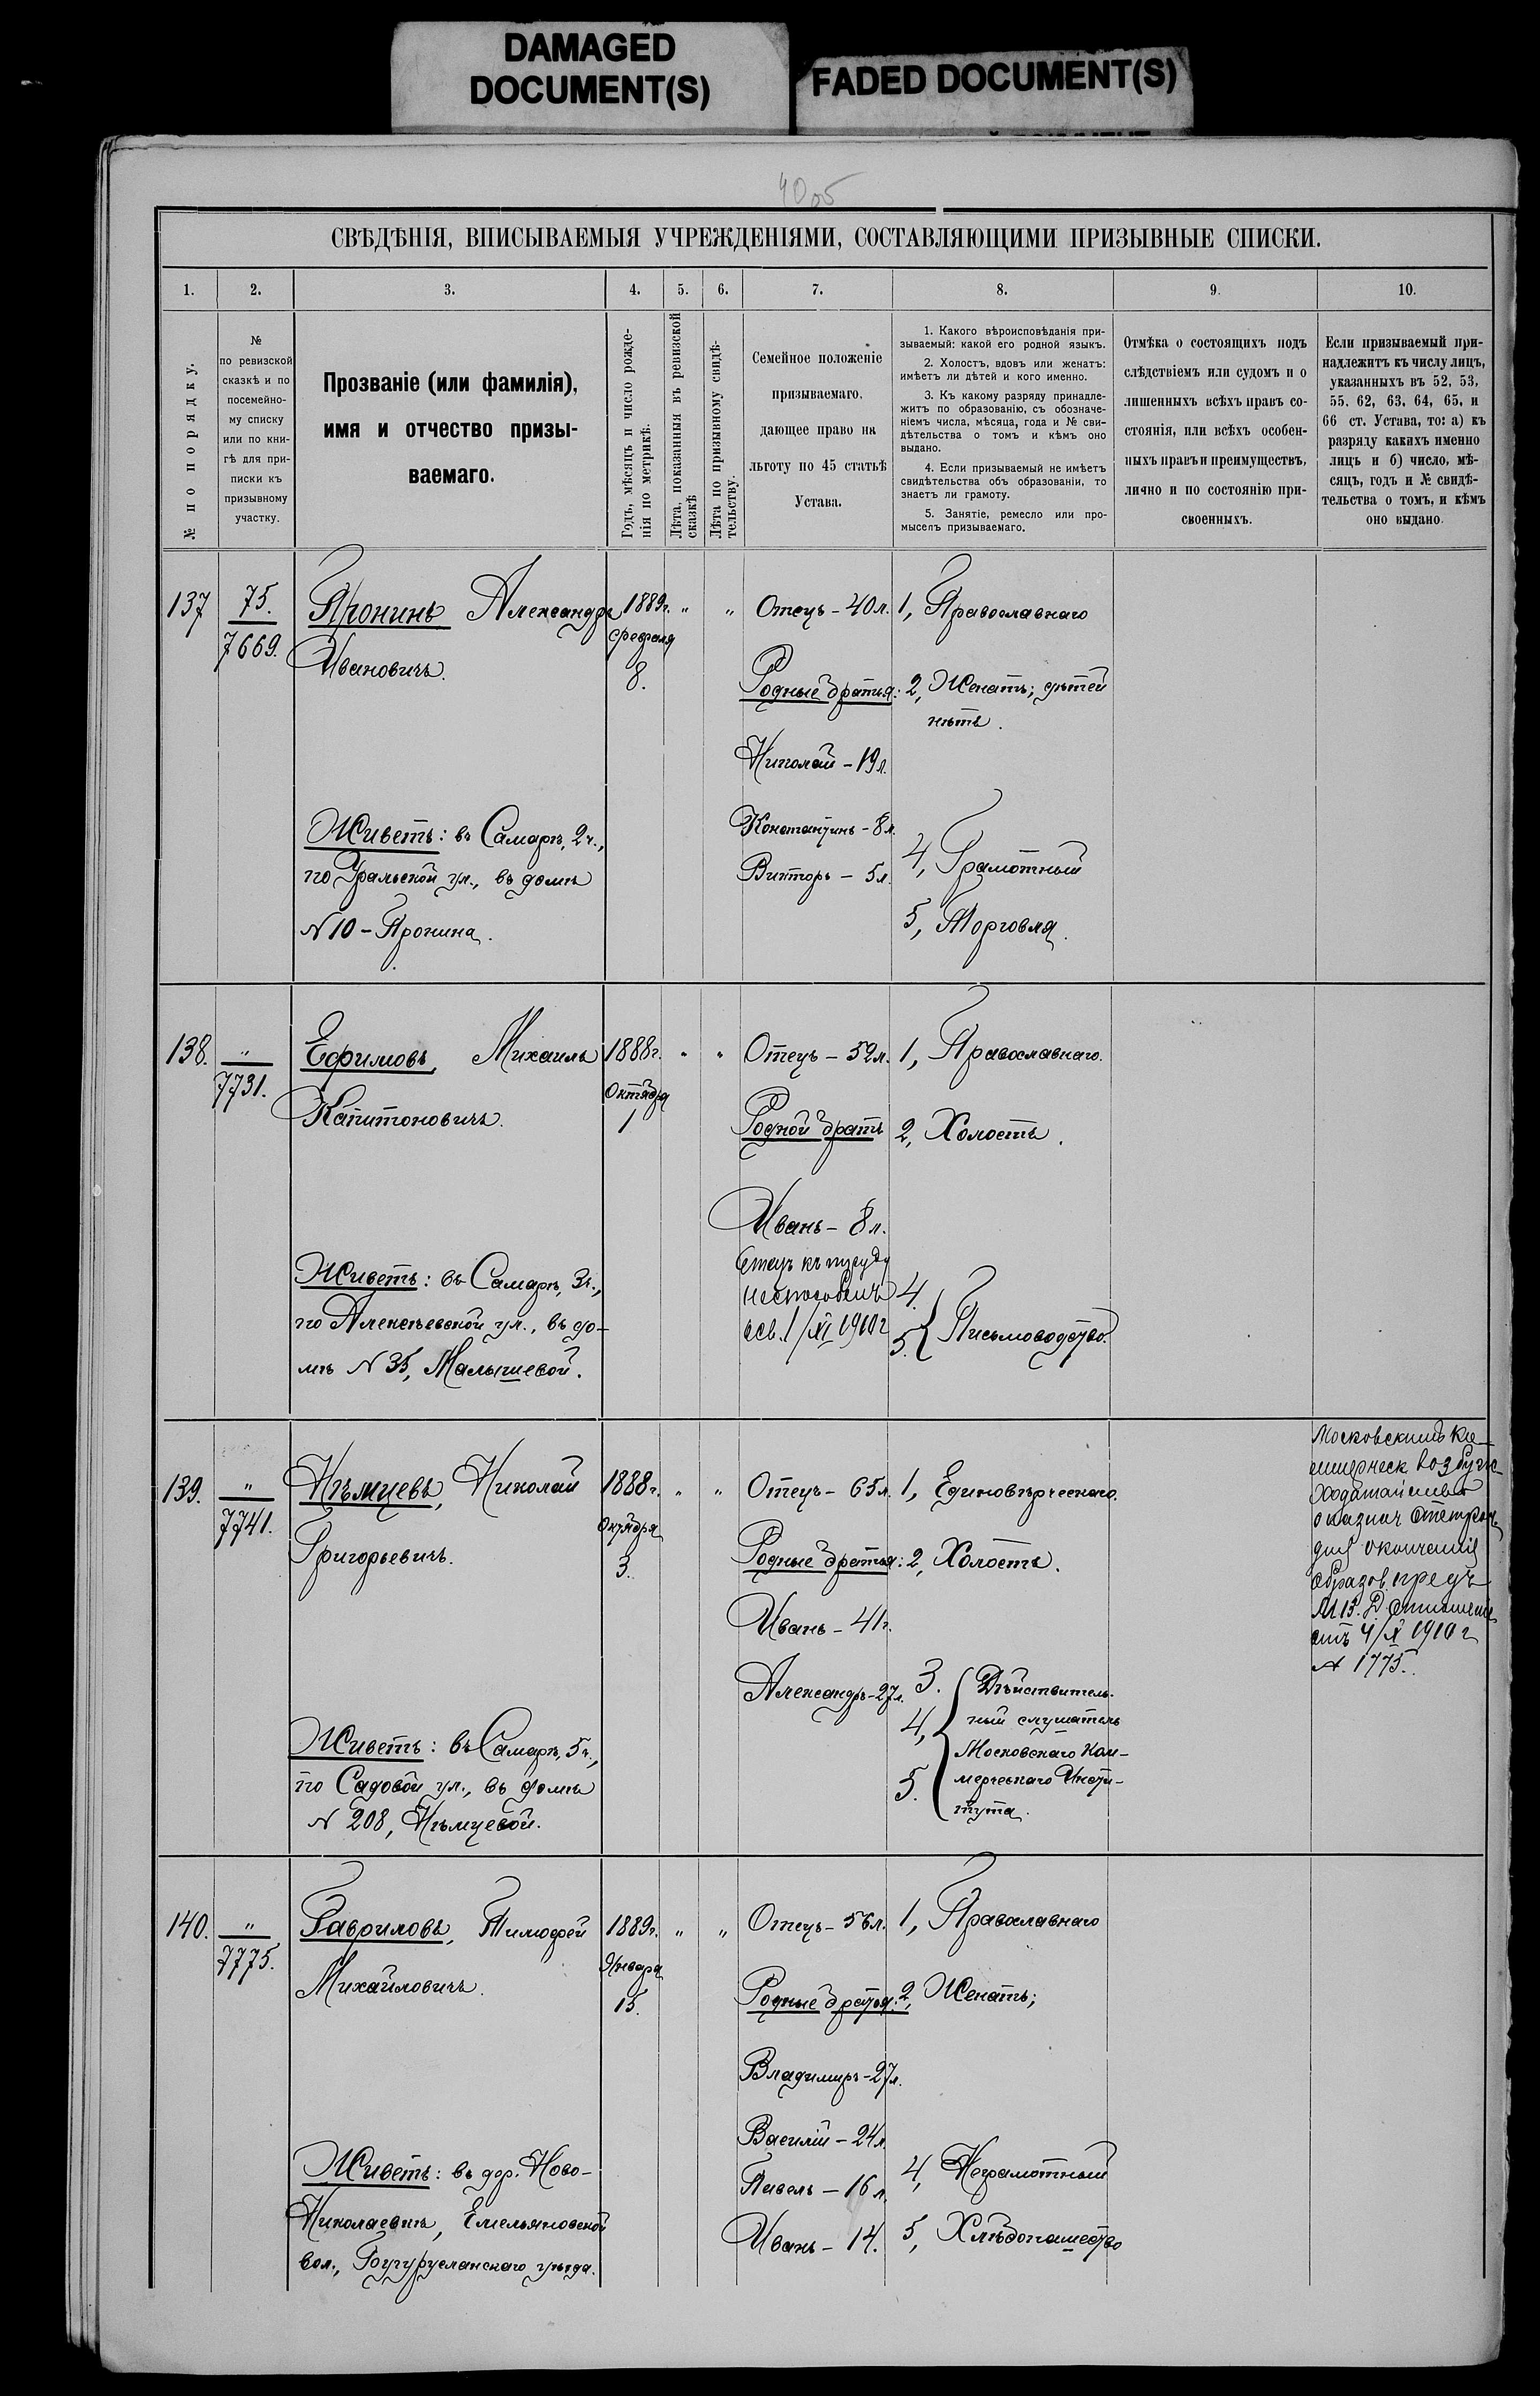 DAMAGED
DOCUMENT(S)
FADED DOCUMENT(S)
40об
СВѢДѢНІЯ, ВПИСЫВАЕМЫЯ УЧРЕЖДЕНІЯМИ, СОСТАВЛЯЮЩИМИ ПРИЗЫВНЫЕ СПИСКИ.
1. 2. 3. 4. 5. 6. 7. 8. 9. 10.
№ по порядку.
№
по ревизской
сказкѣ и по
посемейно-
му списку
или по кни-
гѣ для при-
писки къ
призывному
участку.
Прозваніе (или фамилія),
имя и отчество призы-
ваемаго.
Годъ, мѣсяцъ и число рожде-
нія по метрикѣ.
Лѣта, показанныя въ ревизской
сказкѣ
Лѣта по призывному свидѣ-
тельству.
Семейное положеніе
призываемаго,
дающее право на
льготу по 45 статьѣ
Устава.
1. Какого вѣроисповѣданія при-
зываемый: какой его родной языкъ.
2. Холостъ, вдовъ или женатъ:
имѣетъ ли дѣтей и кого именно.
3. Къ какому разряду принадле-
житъ по образованію, съ обозначе-
ніемъ числа, мѣсяца, года и № сви-
дѣтельства о томъ и кѣмъ оно
выдано.
4. Если призываемый не имѣетъ
свидѣтельства объ образованіи, то
знаетъ ли грамоту.
5. Занятіе, ремесло или про-
мыселъ призываемаго.
Отмѣка о состоящихъ подъ
слѣдствіемъ или судомъ и о
лишенныхъ всѣхъ правъ со-
стоянія, или всѣхъ особен-
ныхъ правъ и преимуществъ,
лично и по состоянію при-
своенныхъ.
Если призываемый при-
надлежитъ къ числу лицъ,
указанныхъ въ 52, 53,
55, 62, 63, 64, 65, и
66 ст. Устава, то: а) къ
разряду какихъ именно
лицъ и б) число, мѣ-
сяцъ, годъ и № свидѣ-
тельства о томъ, и кѣмъ
оно выдано.
137
75.
7669.
Пронинъ Александръ
Ивановичъ.
Живетъ: въ Самарѣ, 2ч.,
по Уральской ул., въ домѣ
N 10 - Пронина.
1889г.
Февраля
8.
" "
Отецъ - 40 л.
Родные братья:
Николай - 19 л.
Константинъ - 8 л.
Викторъ - 5 л.
1, Православнаго
2, Женатъ; дѣтей
нѣтъ.
4, Грамотный
5, Торговля.
138.
"
7731.
Ефимовъ, Михаилъ
Капитоновичъ.
Живетъ: въ Самарѣ, 3ч.,
по Алексѣевской ул., въ до-
мѣ N 35, Малышевой.
1888г.
Октября
1
" "
Отецъ - 52 л.
Родной братъ
Иванъ - 8 л.
Отецъ къ труду
неспособенъ
осв. 1/XI 1910 г
1, Православнаго.
2, Холостъ.
4.
5. Письмоводство.
139.
"
7741.
Нѣмцевъ, Николай
Григорьевичъ.
Живетъ: въ Самарѣ, 5ч.,
по Садовой ул., въ домѣ
N 208, Нѣмцевой.
1888г.
Октября
3.
" "
Отецъ - 65 л.
Родные братья:
Иванъ - 41 г.
Александръ - 27 л.
1, Единовѣрческаго.
2, Холостъ.
3. Дѣйствитель-
4, ный слушатель
Московскаго Ком-
5. мерческаго Инсти-
тута.
Московскимъ Ко-
ммерческ
ходатайство
для окончанія
образов.
4/X 1910 г
N 1775.
140.
"
7775.
Гавриловъ, Тимофей
Михайловичъ.
Живетъ: въ дер. Ново-
Николаевкѣ, Емельяновской
вол., Бугурусланскаго уѣзда.
1889г.
Января
15.
" "
Отецъ - 56 л.
Родные братья:
Владимиръ - 27 л.
Василій - 24 л.
Павелъ - 16 л.
Иванъ - 14.
1, Православнаго
2, Женатъ;
4, Неграмотный
5, Хлѣбопашество